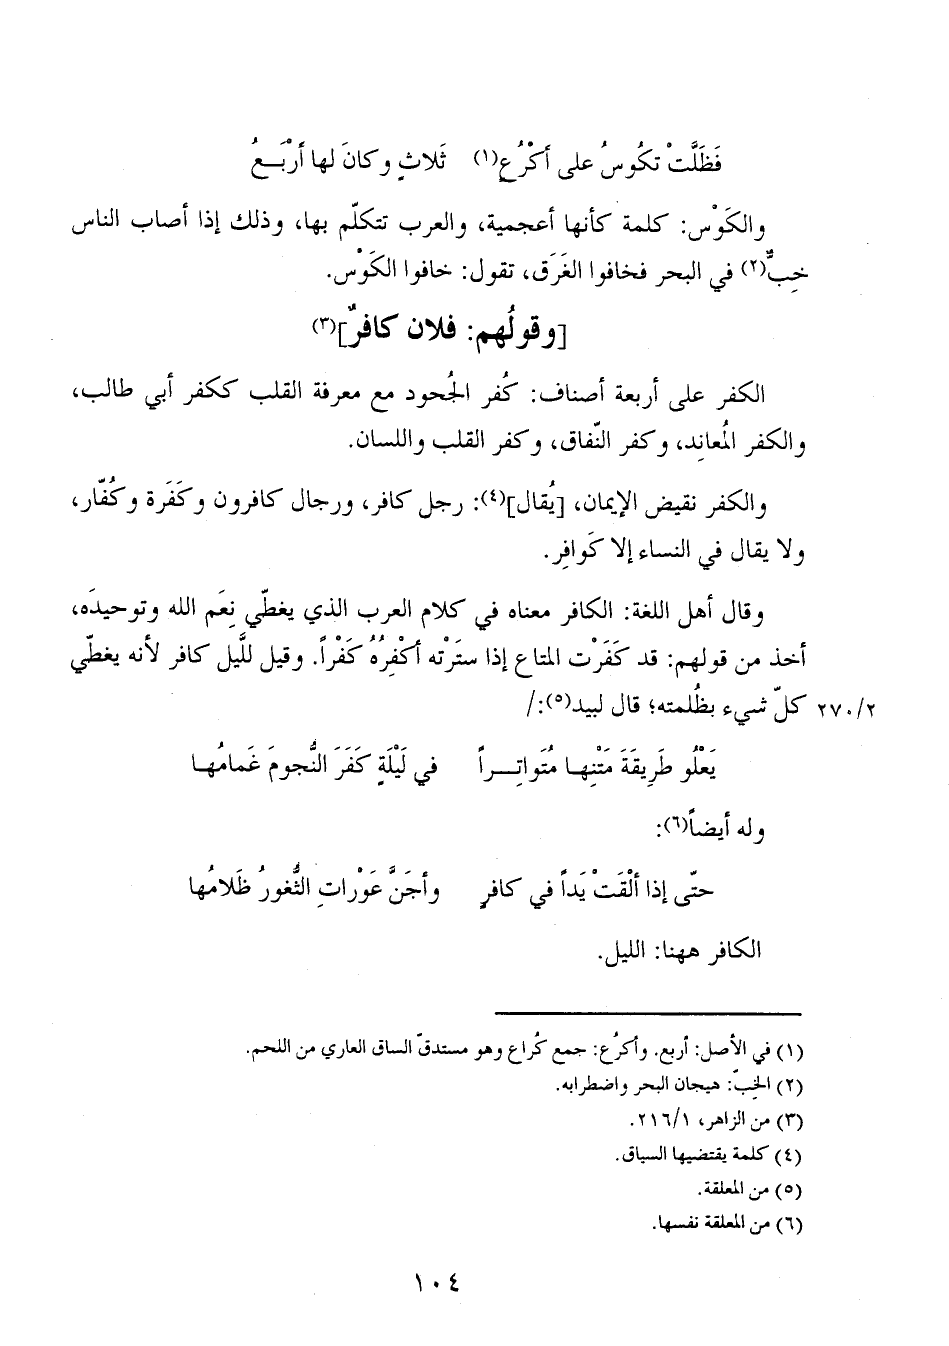 فَظَلَّتْ تكُوسُ على أكْرُعٍ(١) ثَلاثٍ وكانَ لها أرْبَعُ
والكَوْس: كلمة كأنها أعجمية، والعرب تتكلّم بها، وذلك إذا أصاب الناس
خِبٌّ(٢) في البحر فخافوا الغَرَق، تقول: خافوا الكَوْس.
[وقولُهم: فلان كافرٌ](٣)
الكفر على أربعة أصناف: كُفر الجُحود مع معرفة القلب ككفر أبي طالب،
والكفر المُعاند، وكفر النّفاق، وكفر القلب واللسان.
والكفر نقيض الإيمان، [يُقال](٤): رجل كافر، ورجال كافرون وكَفَرة وكُفّار،
ولا يقال في النساء إلا كَوافِر.
وقال أهل اللغة: الكافر معناه في كلام العرب الذي يغطّي نِعَم الله وتوحيدَه،
أخذ من قولهم: قد كَفَرْت المتاع إذا ستَرْته أكْفِرُهُ كَفْراً. وقيل للَّيل كافر لأنه يغطّي
٢٧٠/٢ كلّ شيء بظُلمته؛ قال لبيد(٥):/
يَعْلُو طَرِيقَةَ مَتْنِها مُتَواتِراً في لَيْلَةٍ كَفَرَ النُّجومَ غَمامُها
وله أيضاً(٦):
حتّى إذا ألْقَتْ يَداً في كافرٍ وأجَنَّ عَوْراتِ الثُّغورُ ظَلامُها
الكافر ههنا: الليل.
(١) في الأصل: أربع. وأكرُع: جمع كُراع وهو مستدقّ الساق العاري من اللحم.
(٢) الخِبّ: هيجان البحر واضطرابه.
(٣) من الزاهر، ٢١٦/١.
(٤) كلمة يقتضيها السياق.
(٥) من المعلقة.
(٦) من المعلقة نفسها.
١٠٤